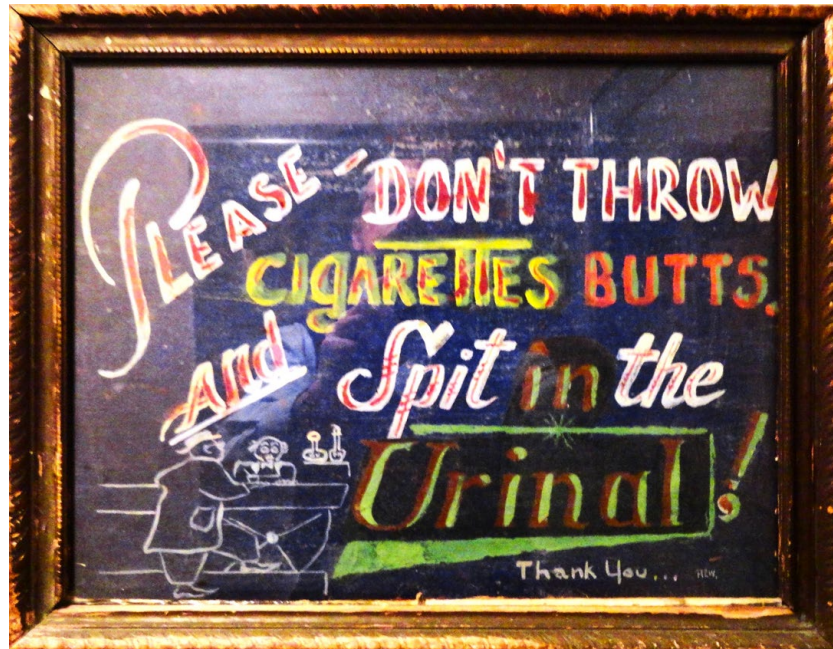 PLEASE - DON'T THROW
CIGARETTES BUTTS.
And Spit in the
Urinal!
Thank You...